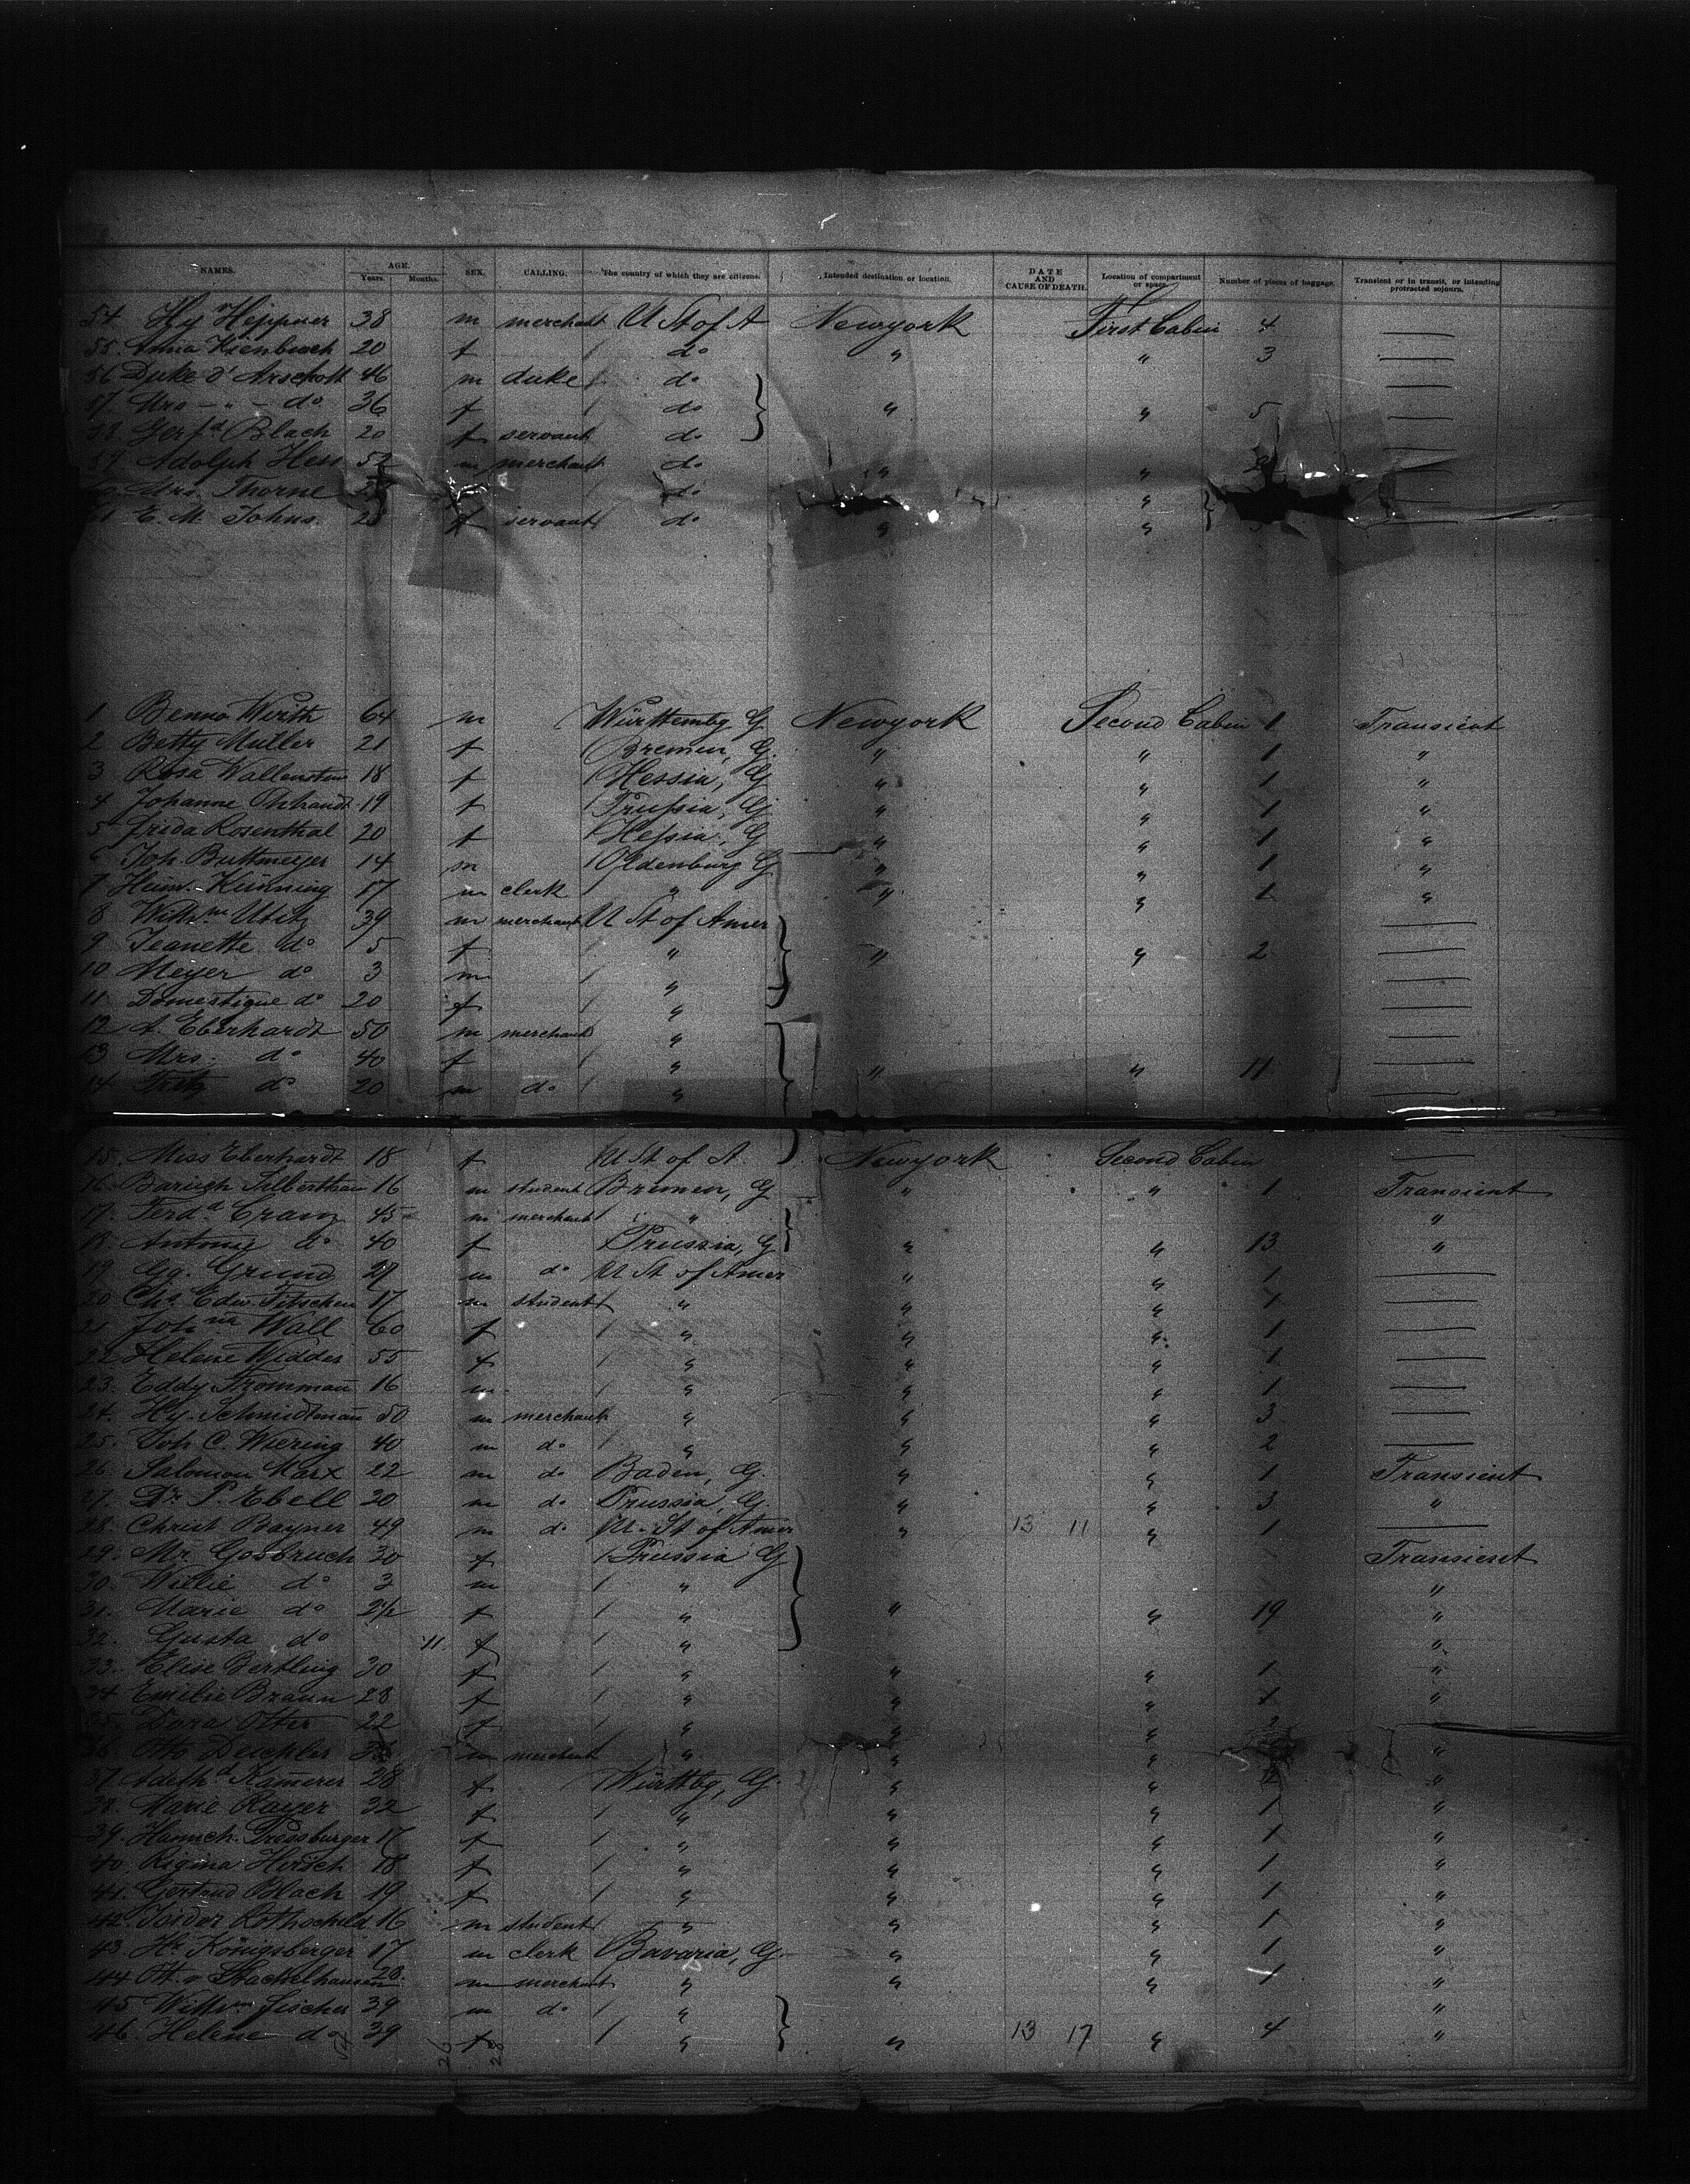 NAMES. AGE. Years. Months. SEX. CALLING. The country of which they are citizens. Intended destination or location. DATE AND CAUSE OF DEATH. Location of compartment or space. Number of pieces of baggage. Transient or in transit, or intending protracted sojourn.
54. Hy Heppner 38 m merchant U St of A Newyork First Cabin 4 —
55. Anna Kienbusch 20 f / do " " 3 —
56 Duke d'Arschott 46 m duke / do —
57. Mrs — " — do 36 f / do " " 5 —
58. Gerfd Blach 20 f servant do —
59 Adolph Hess 52 m merchant do " " —
Mrs. Thorne do " —
61 E. M. Johns. f servant do " " —
1 Benno Wirth 64 m / Württembg G. Newyork Second Cabin 1 Transient
2 Betty Müller 21 f / Bremen, G. " " 1 "
3 Rosa Wallenstein 18 f / Hessia, G " " 1 "
4 Johanne Ohlrandt 19 f / Prussia, G " " 1 "
5 Frida Rosenthal 20 f / Hessia, G " " 1 "
6 Joh. Buttmeyer 14 m / Oldenburg G " " 1 "
7 Heinr. Künning 17 m clerk / " " " 1 "
8 Willm Utitz 39 m merchant U St of Amer —
9 Jeanette do 5 f " " " 2 —
10 Meyer do 3 m / " —
11 Domestique do 20 f / " —
12 A. Eberhardt 50 m merchant / " —
13 Mrs. do 40 f / " " " 11 —
14 Fritz do 20 m do / " —
15. Miss Eberhardt 18 f / U St of A. Newyork Second Cabin —
16. Silberthau 16 m student Bremen, G " " 1 Transient
17. Ferdd Cranz 45 m merchant / " "
18. Antonie do 40 f Prussia, G " " 13 "
19 Gg. Grund 27 m do U St of Amer " " 1 —
20 Chs Edw. Fitschen 17 m student / " " " 1 —
21 Johna Wall 60 f / " " " 1 —
22 Helene Widdes 55 f / " " " 1 —
23. Eddy Frommañ 16 m / " " " 1 —
24. Hy. Schmidtmañ 50 m merchant " " " 3 —
25. Joh C. Wiering 40 m do / " " " 2 —
26. Salomon Marx 22 m do Baden, G. " " 1 Transient
27. Dr P. Ebell 30 m do Prussia, G. " " 3 "
28. Christ Bayner 49 m do U. St of Amer " 13 11 " 1 —
29. Mr. Gosbruch 30 f / Prussia G Transient
30. Willie do 3 m / " "
31. Marie do 2½ f / " " " 19 "
32. Gusta do 11 f / " "
33. Elise Bertling 30 f / " " " 1 "
34 Emilie Braun 28 f / " " " 1 "
35. Dora Otter 22 f / " " "
36. Otto Deichler m merchant " " " "
37 Adelhd Kamerer 28 f / Württbg, G. " " "
38. Marie Rayer 32 f / " " " 1 "
39. Hannch. Pressburger 17 f / " " " 1 "
40. Rigina Hirsch 18 f / " " " 1 "
41. Gertrud Blach 19 f / " " " 1 "
42. Isidor Rothschild 16 m student / " " " 1 "
43. Hr. Königsberger 17 m clerk Bavaria, G. " " 1 "
44 Ott. v Stackelhausen 28. m merchant " " " 1 "
45 Willm Fischer 39 m do / " "
46. Helene do 39 f / " " 13 17 " 4 "
26 28